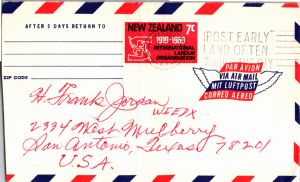 AFTER 5 DAYS RETURN TO
NEW ZEALAND 7c
1919-1969
INTERNATIONAL
LABOUR
ORGANISATION
POST EARLY
AND OFTEN
ZIP CODE
PAR AVION
VIA AIR MAIL
MIT LUFTPOST
CORREO AEREO
H. Frank Jordan
W5EDX
2334 West Mulberry
San Antonio, Texas 78201
U.S.A.